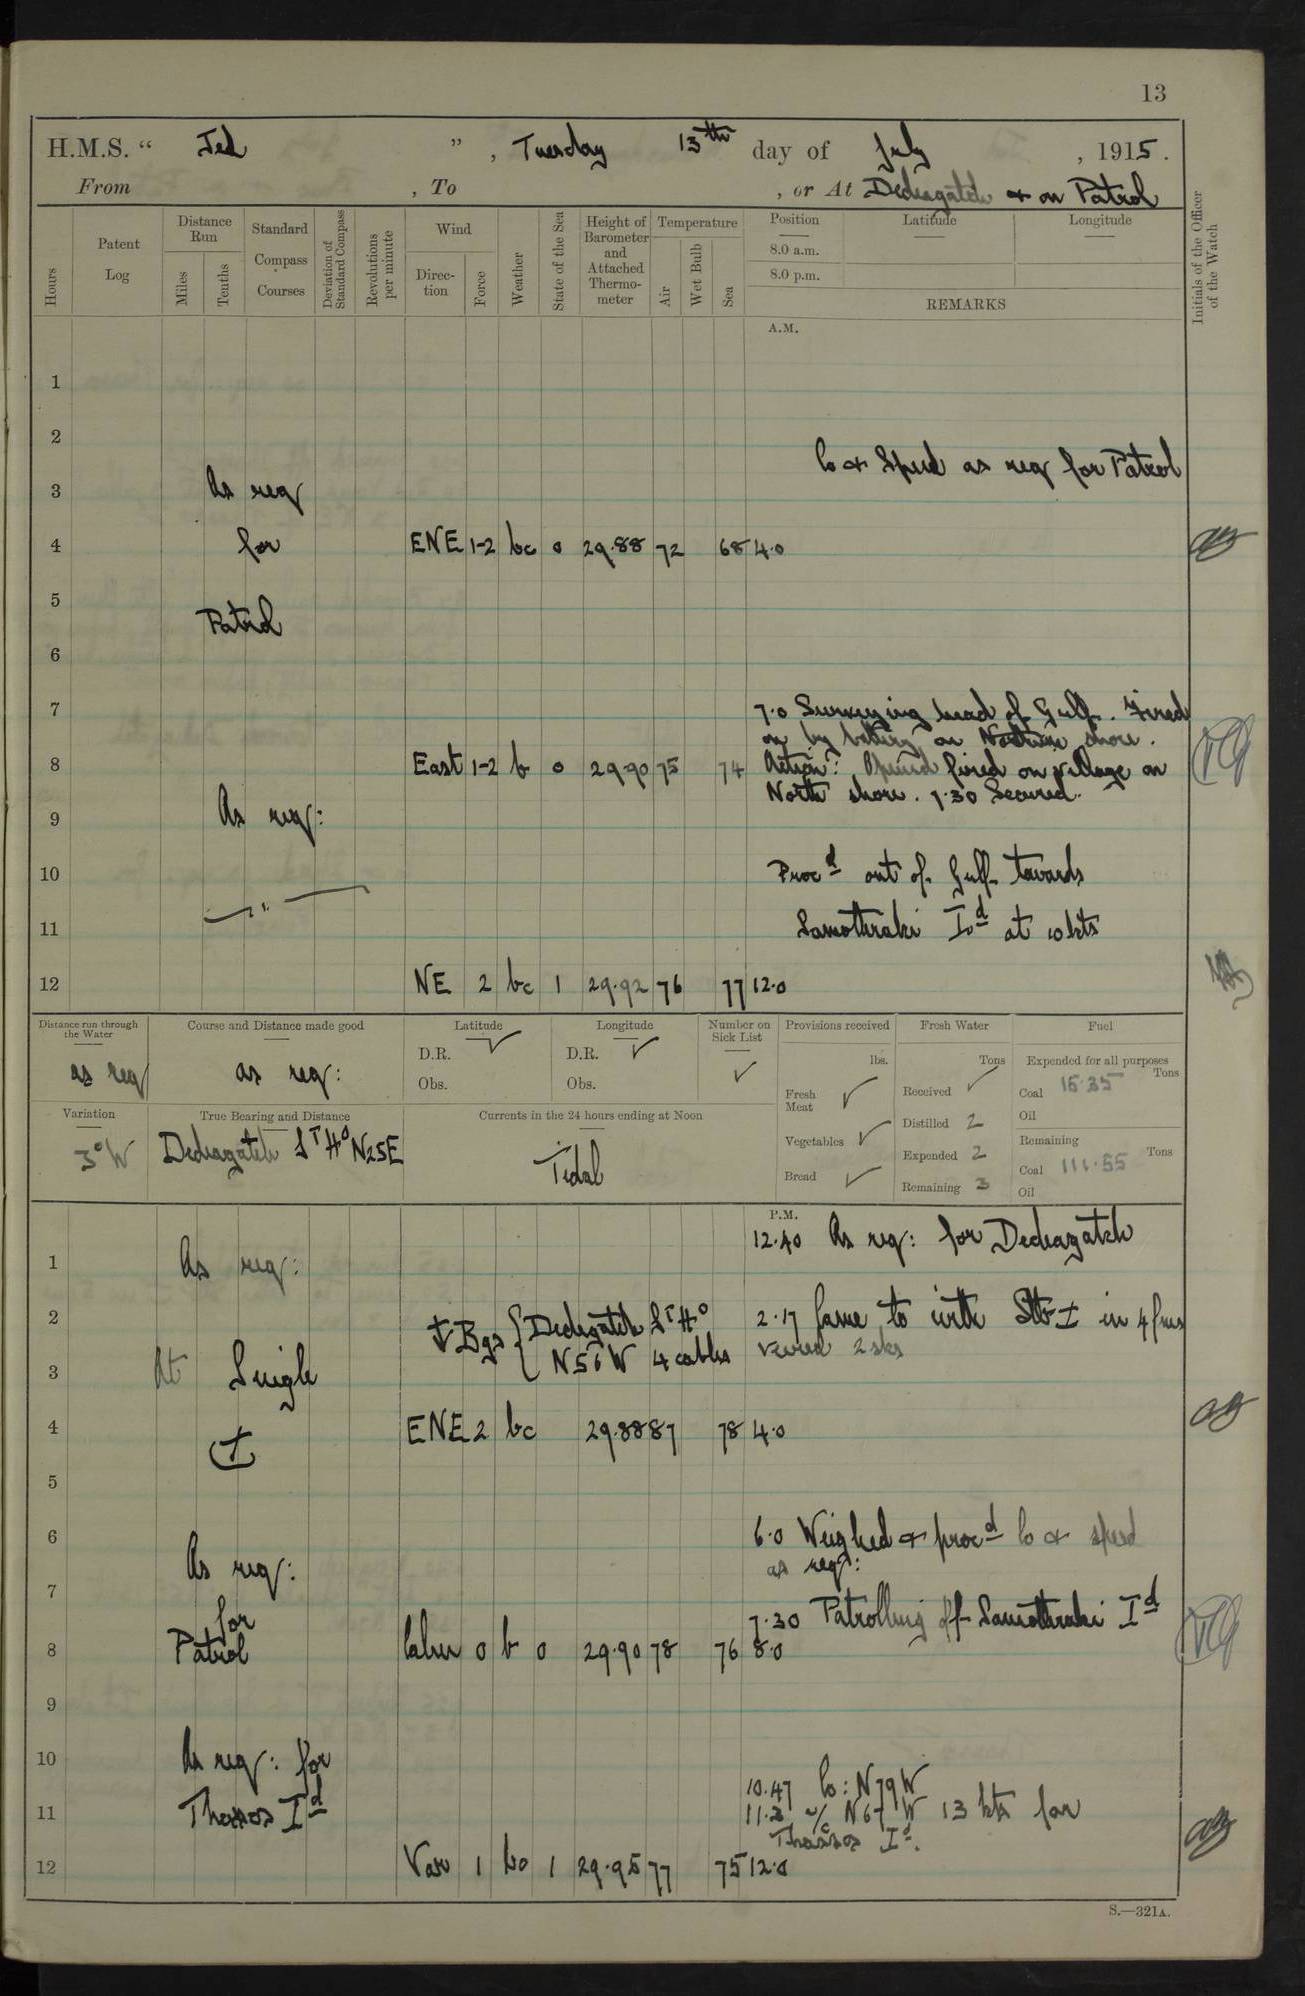 13
H.M.S. “ Jed ”, Tuesday 13th day of July, 1915.
From , To , or At Dedeagatch & on Patrol
Hours
Patent Log
Distance Run
Miles
Tenths
Standard Compass Courses
Deviation of Standard Compass
Revolutions per minute
Wind
Direction
Force
Weather
State of the Sea
Height of Barometer and Attached Thermometer
Temperature
Air
Wet Bulb
Sea
Position
8.0 a.m.
8.0 p.m.
Latitude
Longitude
REMARKS
Initials of the Officer of the Watch
A.M.
1
2
Co & Speed as req for Patrol
3 As req
4 for ENE 1-2 bc 0 29.88 72 68 4.0
5
Patrol
6
7 7.0 Surveying head of Gulf. Fired
on by battery on Northern shore.
8 East 1-2 b 0 29.90 75 74 Action: Opened fired on village on
North shore. 7.30 Secured.
9 As req:
10 Procd out of Gulf towards
"
11 Samothraki Id at 10 kts
12 NE 2 bc 1 29.92 76 77 12.0
Distance run through the Water
as req
Course and Distance made good
as req:
Latitude
D.R. ✓
Obs.
Longitude
D.R. ✓
Obs.
Number on Sick List
✓
Provisions received
lbs.
Fresh Meat ✓
Vegetables ✓
Bread ✓
Fresh Water
Tons
Received ✓
Distilled 2
Expended 2
Remaining 3
Fuel
Expended for all purposes
Coal 15.35 Tons
Oil
Remaining
Coal 111.55 Tons
Oil
Variation
3°W
True Bearing and Distance
Dedeagatch LT Ho N25E
Currents in the 24 hours ending at Noon
Tidal
P.M.
12.40 As req: for Dedeagatch
1 As req:
2 Bgs { Dedeagatch LT Ho 2.17 Came to with Stb in 4 fms
N56W 4 cables veered 2 sks
3 At Single
4 ENE 2 bc 29.88 87 78 4.0
5
6 6.0 Weighed & procd Co & speed
As req: as req:
7
for 7.30 Patrolling off Samothraki Id
8 Patrol Calm 0 b 0 29.90 78 76 8.0
9
10 As req: for
10.47 Co: N79W
11 Thassos Id 11.3 a/c N67W 13 kts for
Thassos Id.
12 Var 1 bc 1 29.95 77 75 12.0
S.—321A.